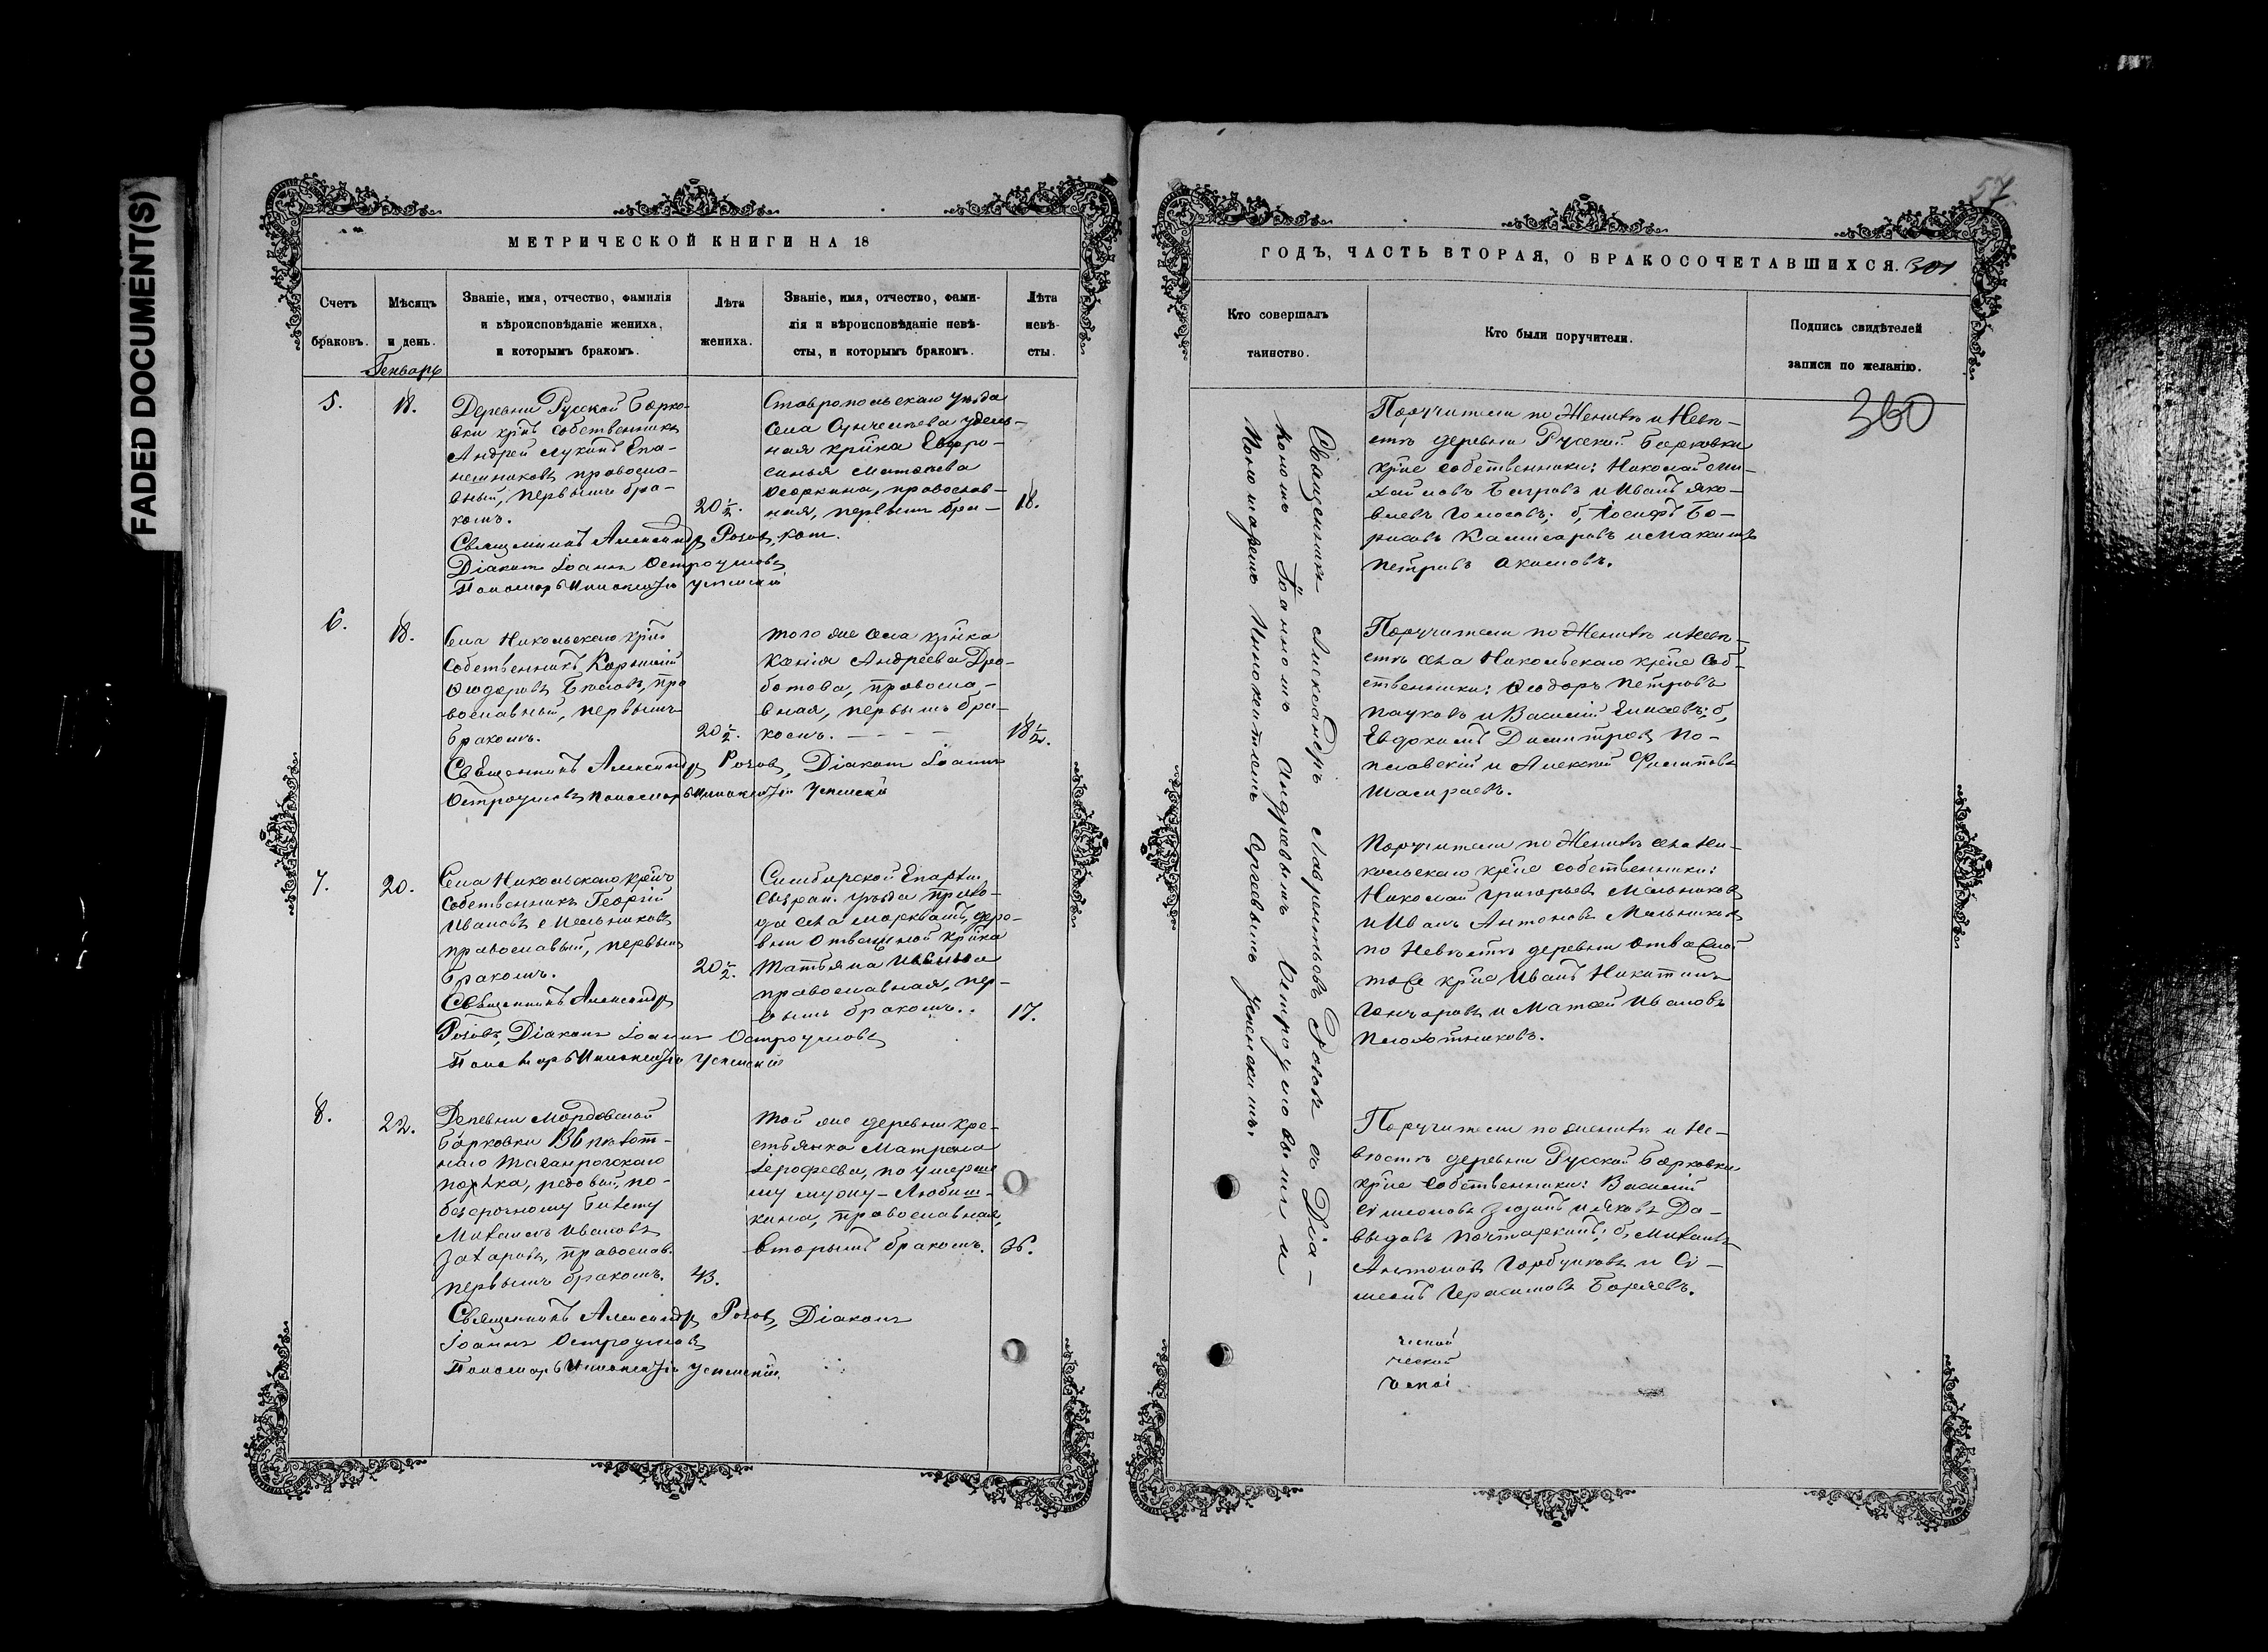 FADED DOCUMENT(S)
МЕТРИЧЕСКОЙ КНИГИ НА 18
Счетъ браковъ.
Мѣсяцъ и день.
Званіе, имя, отчество, фамилія
и вѣроисповѣданіе жениха,
и которымъ бракомъ.
Лѣта жениха.
Званіе, имя, отчество, фами-
лія и вѣроисповѣданіе невѣ-
сты, и которымъ бракомъ.
Лѣта невѣ-
сты.
Генварь
5.
18.
Деревни Русской Борко-
вки крнъ собственникъ
Андрей Лукинъ Епа-
нешниковъ правосла-
вный, первымъ бра-
комъ.
20 ½.
Ставропольскаго уѣзда
села
ная крнка Евфро-
синья Матѳѣева
православ-
ная, первымъ бра-
комъ.
18.
Священникъ Александръ Розовъ,
Діаконъ Іоаннъ Остроумовъ
Пономарь Иннокентій Успенскій
6.
18.
Села Никольскаго крнъ
собственникъ
Ѳеодоровъ пра
вославный, первымъ
бракомъ.
20 ½.
того же села крнка
Ксенія Андреева Дро-
ботова, правосла-
вная, первымъ бра-
комъ.
18 ½.
Священникъ Александръ Розовъ, Діаконъ Іоаннъ
Остроумовъ Пономарь Иннокентій Успенскій
7.
20.
Села Никольскаго
собственникъ Георгій
Ивановъ Мельниковъ
православный, первымъ
бракомъ.
20 ½.
Симбирской Епархіи
Сызран. уѣзда прихо-
да села Морквашъ, дере-
вни Отважной крнка
Татьяна
православная, пер-
вымъ бракомъ.
17.
Священникъ Александръ
Розовъ, Діаконъ Іоаннъ Остроумовъ
Пономарь Иннокентій Успенскій
8.
22.
Деревни Мордовской
Борковки
наго Таганрогскаго
полка, рядовой, по
безсрочному билету
Михаилъ Ивановъ
Захаровъ, православ.
первымъ бракомъ.
43.
той же деревни кре-
стьянка Матрена
Іерофеева, по умерше
му мужу - Любиш-
кина, православная,
вторымъ бракомъ.
36.
Священникъ Александръ Розовъ, Діаконъ
Іоаннъ Остроумовъ
Пономарь Иннокентій Успенскій
57
ГОДЪ, ЧАСТЬ ВТОРАЯ, О БРАКОСОЧЕТАВШИХСЯ.
301
Кто совершалъ таинство.
Кто были поручители.
Подпись свидѣтелей
записи по желанію.
360
Священникъ Александръ Лаврентьевъ Розовъ съ Діа-
кономъ Іоанномъ Андреевымъ Остроумовымъ и
Пономаремъ Иннокентіемъ Сергеевымъ Успенскимъ.
Поручители по Женихѣ и Невѣ-
стѣ деревни Русской Борковки
крне собственники: Николай Ми-
хайловъ Багровъ и Иванъ Яко-
влевъ Голосовъ; б, Іосифъ Бо-
рисовъ Комисаровъ и Максимъ
Петровъ Акимовъ.
Поручители по Женихѣ и Невѣ-
стѣ села Никольскаго крне соб-
ственники: Ѳеодоръ Петровъ
Пауковъ и Василій Елисеевъ; б,
Евдокимъ Димитріевъ По-
плавскій и Алексѣй Филиповъ
Поручители по Женихѣ села Ни-
кольскаго крне собственники:
Николай Григорьевъ Мельниковъ
и Иванъ Антоновъ Мельниковъ
по Невѣстѣ деревни Отважной
тоже крне Иванъ Никитинъ
Гончаровъ и Матѳей Ивановъ
Плотниковъ.
Поручители по женихѣ и Не-
вѣстѣ деревни Русской Борковки
крне собственники: Василій
Симеоновъ и Яковъ Да-
выдовъ б, Михаилъ
Антоновъ Горбунковъ и Си-
меонъ Герасимовъ
ческой
ческой